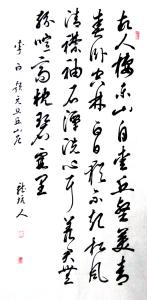 故人棲東山自愛丘壑美青
春卧空林白日猶不起松風
清襟袖石潭洗心耳羡君無
紛喧高枕碧霞里
李白題元丹丘山居